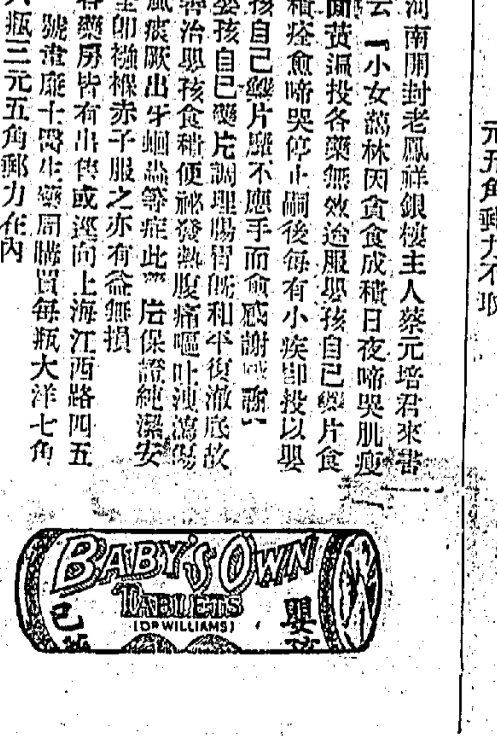 元五角郵力不收
河南開封老鳳祥銀樓主人蔡元培君來書
云『小女藹林因貪食成積日夜啼哭肌瘦
面黃遍投各藥無效迨服嬰孩自己藥片食
積痊愈啼哭停止嗣後每有小疾卽投以嬰
孩自己藥片靡不應手而愈感謝感謝』
嬰孩自己藥片調理腸胃旣和平復澈底故
治嬰孩食積便祕發熱腹痛嘔吐洩瀉
風痰厥出牙蛔蟲等症此 片保證純潔安
全卽襁褓赤子服之亦有益無損
藥房皆有出售或逕向上海江西路四五
號韋廉士醫生藥局購買每瓶大洋七角
六瓶三元五角郵力在內
BABY'S OWN
TABLETS
(DR WILLIAMS)
嬰孩
己